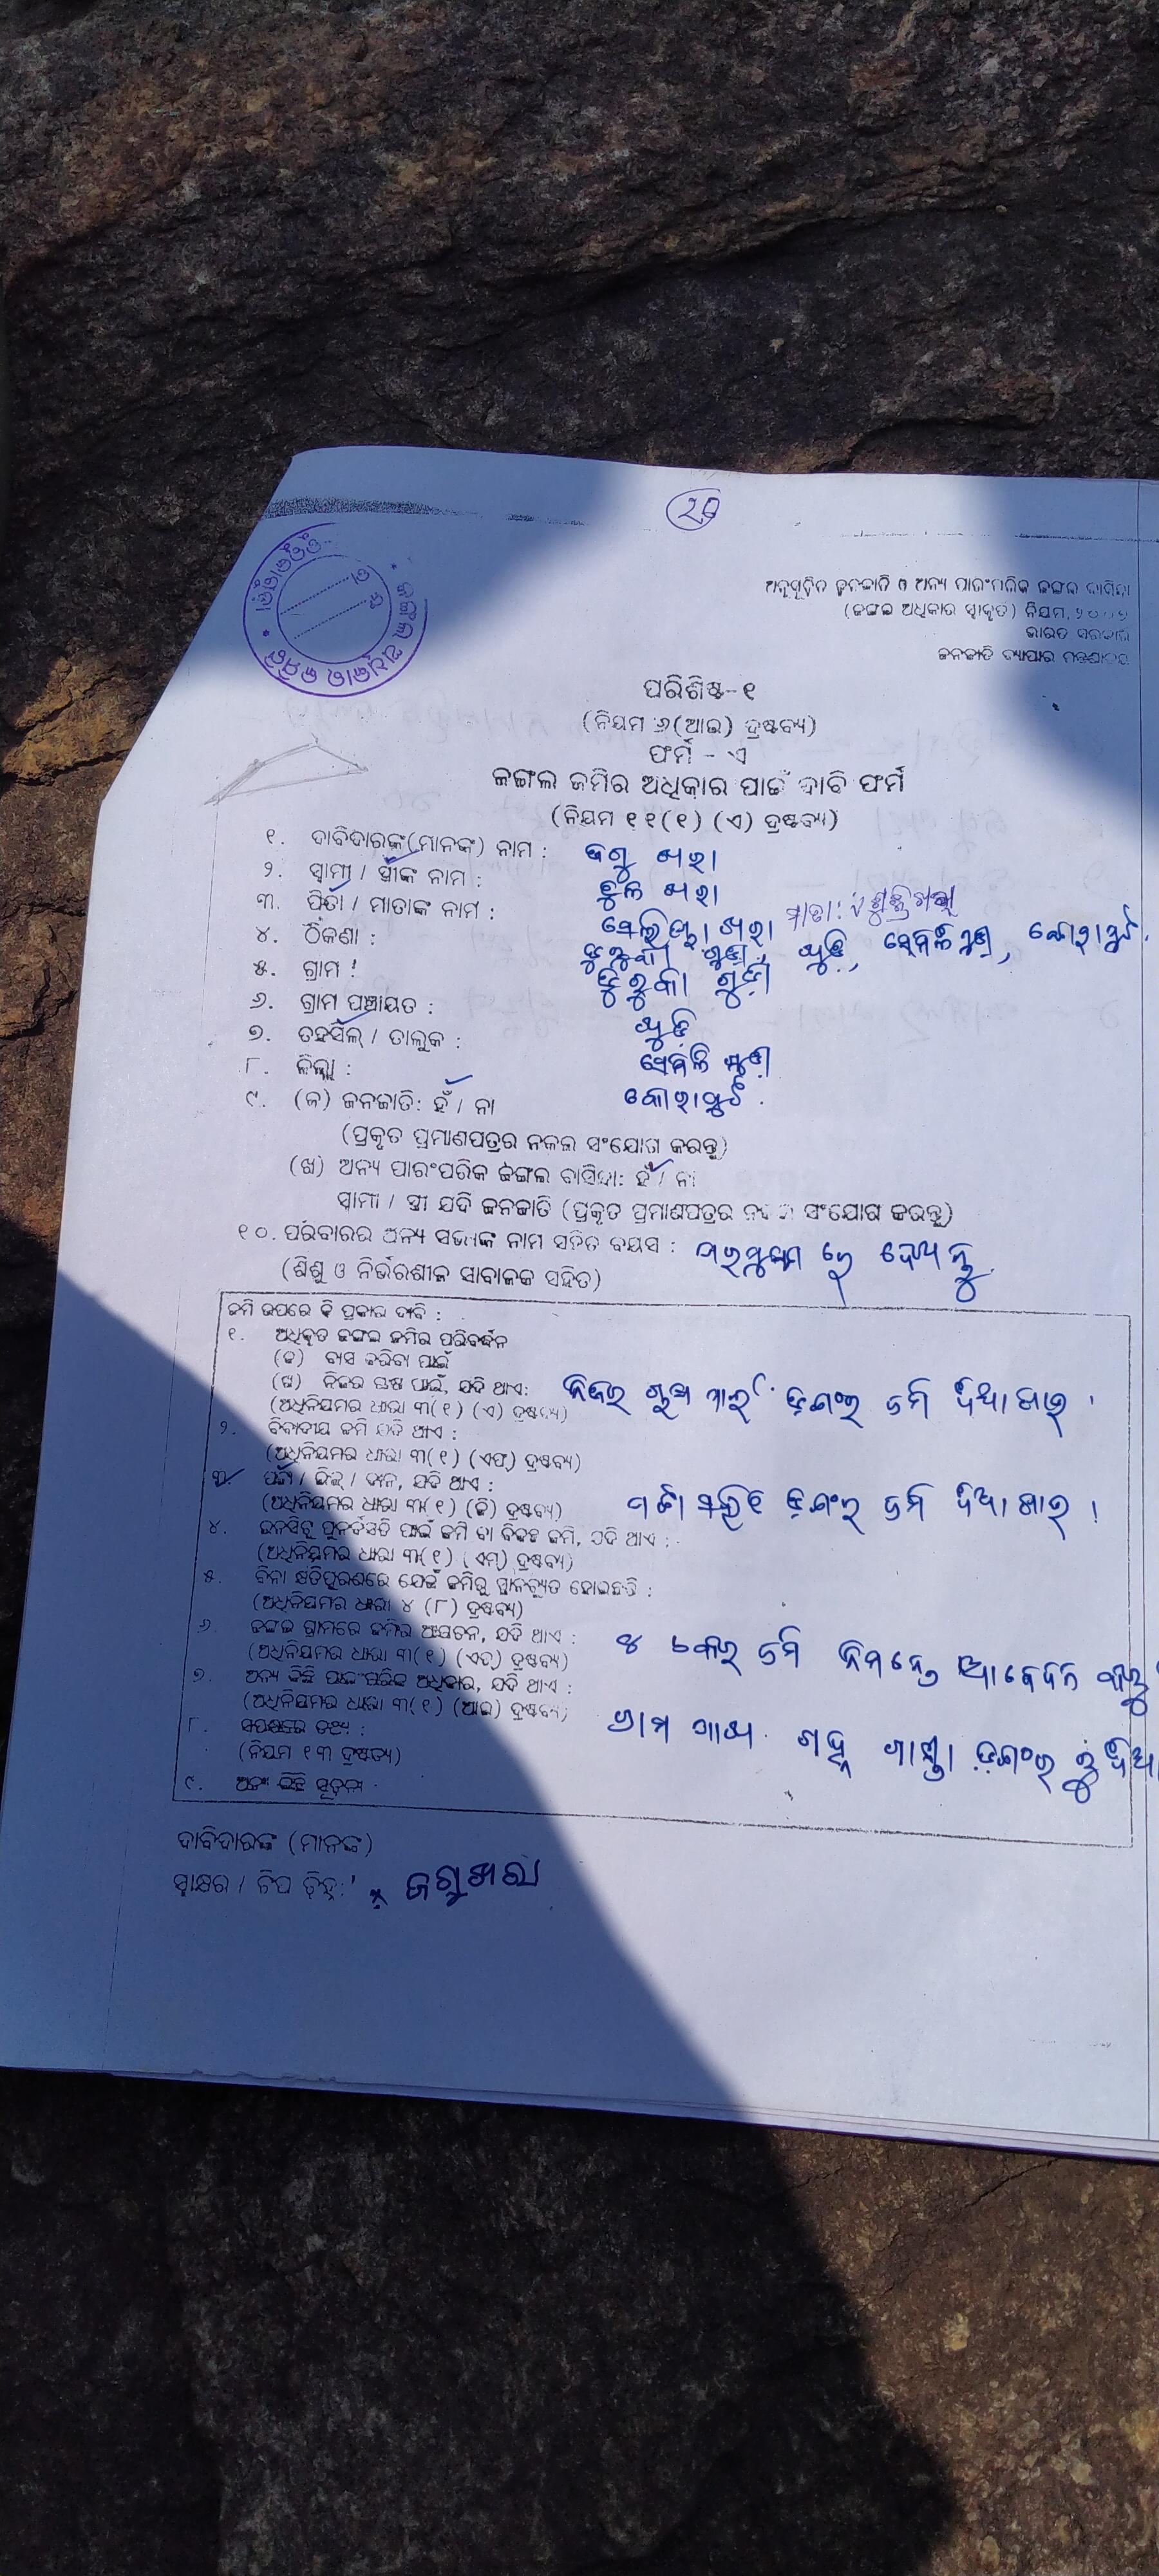 ୨୫
ଅନୁସୂଚିତ ଜନଜାତି ଓ ଅନ୍ୟ ପାରଂପରିକ ଜଙ୍ଗଲ ବାସିନ୍ଦା
(ଜଙ୍ଗଲ ଅଧିକାର ସ୍ୱୀକୃତ) ନିୟମ, ୨୦୦୭
ଭାରତ ସରକାର
ଜନଜାତି ବ୍ୟାପାର ମନ୍ତ୍ରଣାଳୟ
ଜଙ୍ଗଲ ଅଧିକାର କମିଟି
ପରିଶିଷ୍ଟ-୧
(ନିୟମ ୬(ଆଇ) ଦ୍ରଷ୍ଟବ୍ୟ)
ଫର୍ମ - ଏ
ଜଙ୍ଗଲ ଜମିର ଅଧିକାର ପାଇଁ ଦାବି ଫର୍ମ
(ନିୟମ ୧୧(୧) (ଏ) ଦ୍ରଷ୍ଟବ୍ୟ)
୧. ଦାବିଦାରଙ୍କ(ମାନଙ୍କ) ନାମ : ଜଗୁ ଖରା
୨. ସ୍ୱାମୀ / ସ୍ତ୍ରୀଙ୍କ ନାମ : ଝୁଲ ଖରା
୩. ପିତା / ମାତାଙ୍କ ନାମ : ଖରା ମାତା:
୪. ଠିକଣା : କୋରାପୁଟ.
୫. ଗ୍ରାମ : ଝୁରୁକା ଗୁଡ଼ା
୬. ଗ୍ରାମ ପଞ୍ଚାୟତ :
୭. ତହସିଲ୍ / ତାଲୁକ : ସେମିଳିଗୁଡ଼ା
୮. ଜିଲ୍ଲା : କୋରାପୁଟ.
୯. (କ) ଜନଜାତି: ହଁ / ନା
(ପ୍ରକୃତ ପ୍ରମାଣପତ୍ରର ନକଲ ସଂଯୋଗ କରନ୍ତୁ)
(ଖ) ଅନ୍ୟ ପାରଂପରିକ ଜଙ୍ଗଲ ବାସିନ୍ଦା: ହଁ / ନା
ସ୍ୱାମୀ / ସ୍ତ୍ରୀ ଯଦି ଜନଜାତି (ପ୍ରକୃତ ପ୍ରମାଣପତ୍ରର ନକଲ ସଂଯୋଗ କରନ୍ତୁ)
୧୦. ପରିବାରର ଅନ୍ୟ ସଭ୍ୟଙ୍କ ନାମ ସହିତ ବୟସ : ପରପୃଷ୍ଠା ରେ ଦେଖନ୍ତୁ.
(ଶିଶୁ ଓ ନିର୍ଭରଶୀଳ ସାବାଳକ ସହିତ)
ଜମି ଉପରେ କି ପ୍ରକାର ଦାବି :
୧. ଅଧିକୃତ ଜଙ୍ଗଲ ଜମିର ପରିବର୍ତ୍ତନ
(କ) ବାସ କରିବା ପାଇଁ
(ଖ) ନିଜର ଚାଷ ପାଇଁ, ଯଦି ଥାଏ: ନିଜର ଚାଷ ପାଇଁ ଜମି ଦିଆଯାଉ ।
(ଅଧିନିୟମର ଧାରା ୩(୧) (ଏ) ଦ୍ରଷ୍ଟବ୍ୟ)
୨. ବିବାଦୀୟ ଜମି ଯଦି ଥାଏ :
(ଅଧିନିୟମର ଧାରା ୩(୧) (ଏଫ୍) ଦ୍ରଷ୍ଟବ୍ୟ)
୩. ପଟ୍ଟା / ଲିଜ୍ / ଦାନ, ଯଦି ଥାଏ : ଜମି ଦିଆଯାଉ ।
(ଅଧିନିୟମର ଧାରା ୩(୧) (ଜି) ଦ୍ରଷ୍ଟବ୍ୟ)
୪. ଇନସିଟୁ ପୁନର୍ବସତି ପାଇଁ ଜମି ବା ବିକଳ୍ପ ଜମି, ଯଦି ଥାଏ :
(ଅଧିନିୟମର ଧାରା ୩(୧) (ଏମ୍) ଦ୍ରଷ୍ଟବ୍ୟ)
୫. ବିନା କ୍ଷତିପୂରଣରେ ଯେଉଁ ଜମିରୁ ସ୍ଥାନଚ୍ୟୁତ ହୋଇଛନ୍ତି :
(ଅଧିନିୟମର ଧାରା ୪ (୮) ଦ୍ରଷ୍ଟବ୍ୟ)
୬. ଜଙ୍ଗଲ ଗ୍ରାମରେ ଜମିର ଆୟତନ, ଯଦି ଥାଏ : ୪ ଏକର ଜମି ନିମନ୍ତେ ଆବେଦନ
(ଅଧିନିୟମର ଧାରା ୩(୧) (ଏଚ୍) ଦ୍ରଷ୍ଟବ୍ୟ)
୭. ଅନ୍ୟ କିଛି ପାରଂପରିକ ଅଧିକାର, ଯଦି ଥାଏ :
(ଅଧିନିୟମର ଧାରା ୩(୧) (ଆଇ) ଦ୍ରଷ୍ଟବ୍ୟ)
୮. ସପକ୍ଷରେ ତଥ୍ୟ :
(ନିୟମ ୧୩ ଦ୍ରଷ୍ଟବ୍ୟ)
୯. ଅନ୍ୟ କିଛି ସୂଚନା
ଦାବିଦାରଙ୍କ (ମାନଙ୍କ)
ସ୍ୱାକ୍ଷର / ଟିପ ଚିହ୍ନ: ଜଗୁ ଖରା